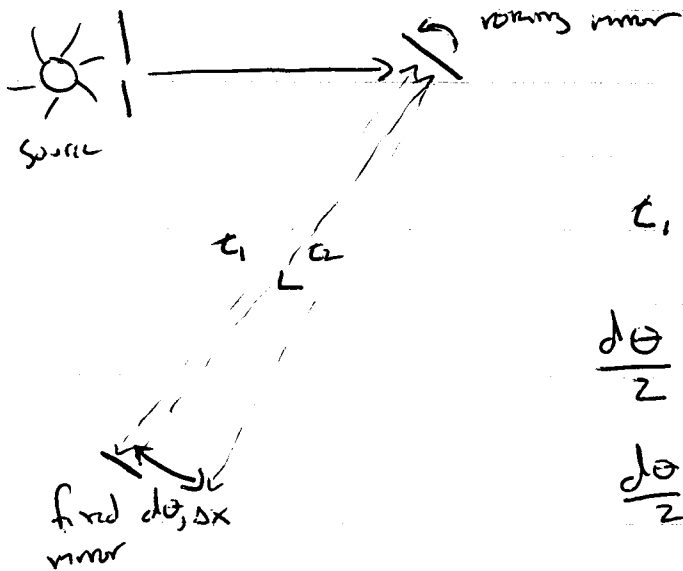 rotating mirror
source
t₁
t₁ t₂
L
dθ
2
dθ
2
fixed dθ, Δx
mirror